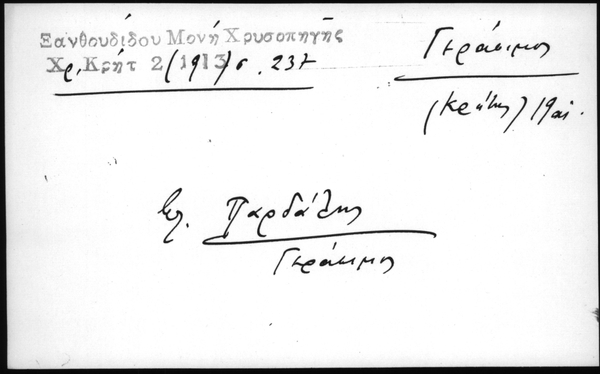 Ξανθουδίδου Μονή Χρυσοπηγῆς
Χρ. Κρήτ 2 (1913) σ. 237
Γεράσιμος
(Κρήτης) 19 αἰ.
βλ. Παρδάλης
Γεράσιμος